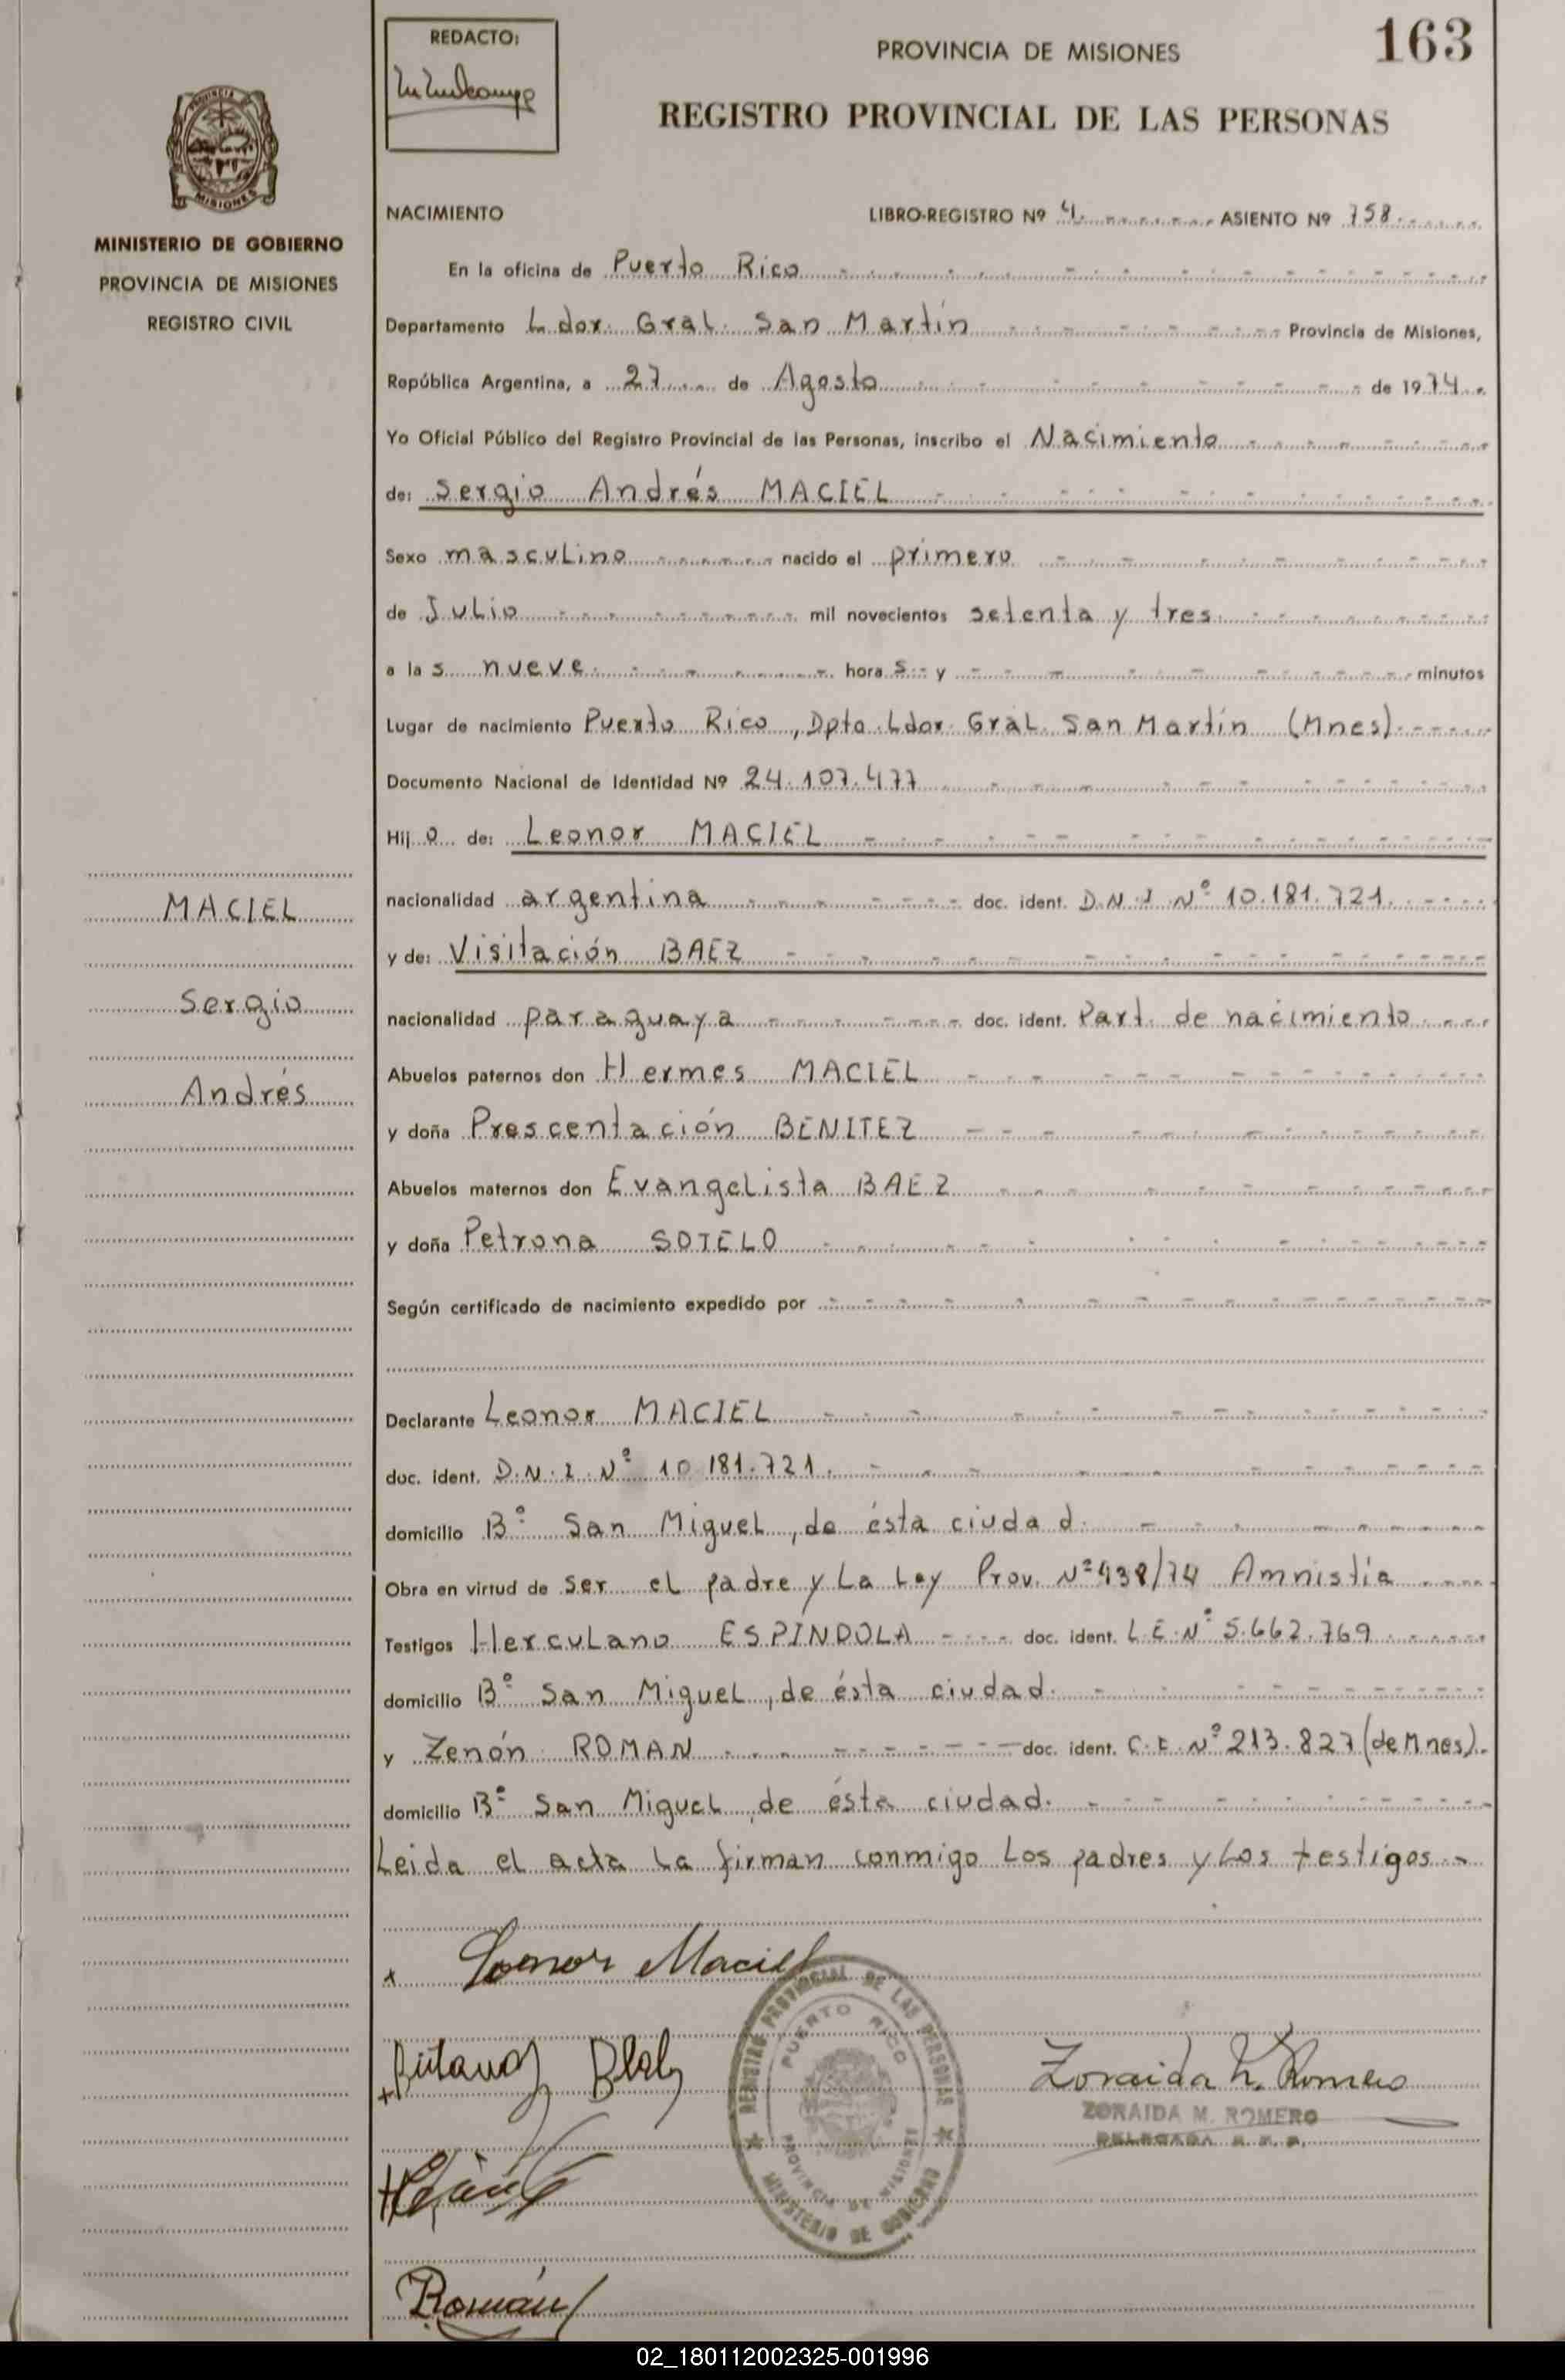 163
REDACTO:
PROVINCIA DE MISIONES
REGISTRO PROVINCIAL DE LAS PERSONAS
PROVINCIA DE
MISIONES
MINISTERIO DE GOBIERNO
PROVINCIA DE MISIONES
REGISTRO CIVIL
NACIMIENTO LIBRO-REGISTRO Nº 4 ASIENTO Nº 758
En la oficina de Puerto Rico
Departamento Ldor. Gral. San Martín Provincia de Misiones,
República Argentina, a 27 de Agosto de 1974
Yo Oficial Público del Registro Provincial de las Personas, inscribo el Nacimiento
de: Sergio Andrés MACIEL
Sexo masculino nacido el primero
de Julio mil novecientos setenta y tres
a las nueve horas y minutos
Lugar de nacimiento Puerto Rico, Dpto. Ldor. Gral. San Martín (Mnes)
Documento Nacional de Identidad Nº 24.107.477
Hijo de: Leonor MACIEL
nacionalidad argentina doc. ident. D.N.I Nº 10.181.721.
y de: Visitación BAEZ
nacionalidad paraguaya doc. ident. Part. de nacimiento
Abuelos paternos don Hermes MACIEL
y doña Prescentación BENITEZ
Abuelos maternos don Evangelista BAEZ
y doña Petrona SOTELO
Según certificado de nacimiento expedido por
Declarante Leonor MACIEL
doc. ident. D.N.I. Nº 10.181.721.
domicilio Bº San Miguel, de ésta ciudad.
Obra en virtud de ser el padre y La Ley Prov. Nº 438/74 Amnistía
Testigos Herculano ESPINDOLA doc. ident. L.E. Nº 5.662.769
domicilio Bº San Miguel, de ésta ciudad.
y Zenón ROMAN doc. ident. C.I. Nº 213.827 (de Mnes).
domicilio Bº San Miguel, de ésta ciudad.
Leida el acta la firman conmigo los padres y los testigos.
MACIEL
Sergio
Andrés
Leonor Maciel
REGISTRO PROVINCIAL DE LAS PERSONAS
PUERTO RICO
PROVINCIA DE MISIONES
MINISTERIO DE GOBIERNO
Zoraida M. Romero
ZORAIDA M. ROMERO
DELEGADA R. P. P.
Román
02_180112002325-001996